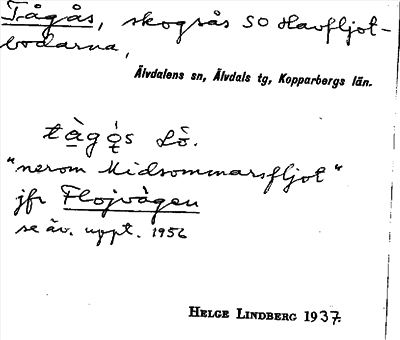 Tågås, skogsås SO Havfljot-
bodarna,
Älvdalens sn, Älvdals tg, Kopparbergs län.
tàgǫ́s Lò.
"nerom Midsommarsfljot"
jfr Flojvågen
se äv. uppt. 1956
HELGE LINDBERG 1937.